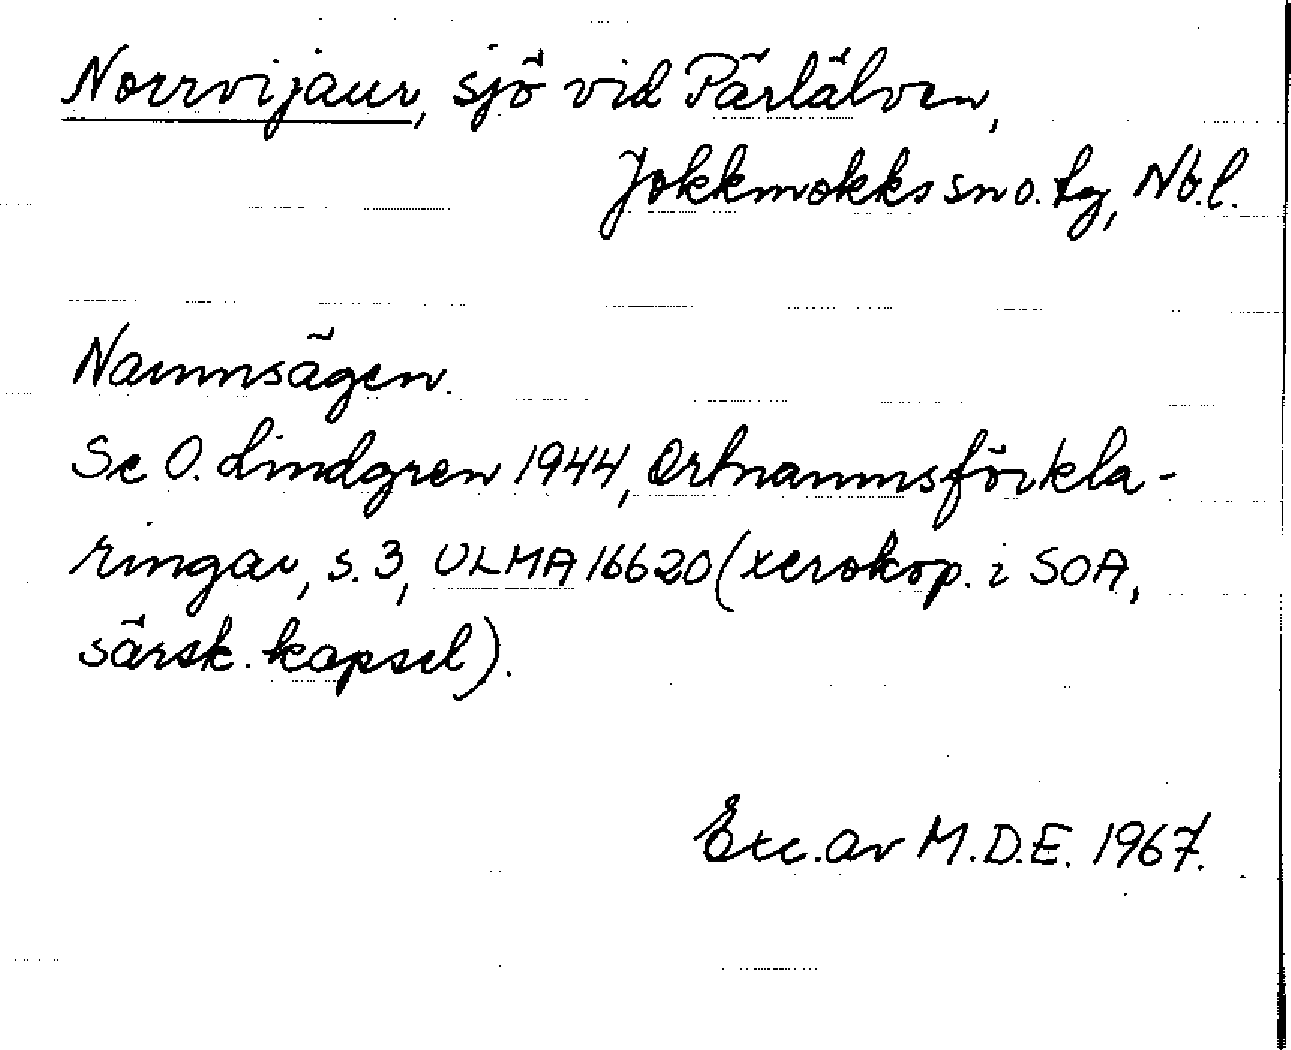 Norrvijaur, sjö vid Pärlälven,
Jokkmokks sn o. tg, Nb.l.
Namnsägen.
Se O. Lindgren 1944, Ortnamnsförkla-
ringar, s. 3, ULMA 16620 (xerokop. i SOA,
särsk. kapsel).
Exc. av M.D.E. 1967.